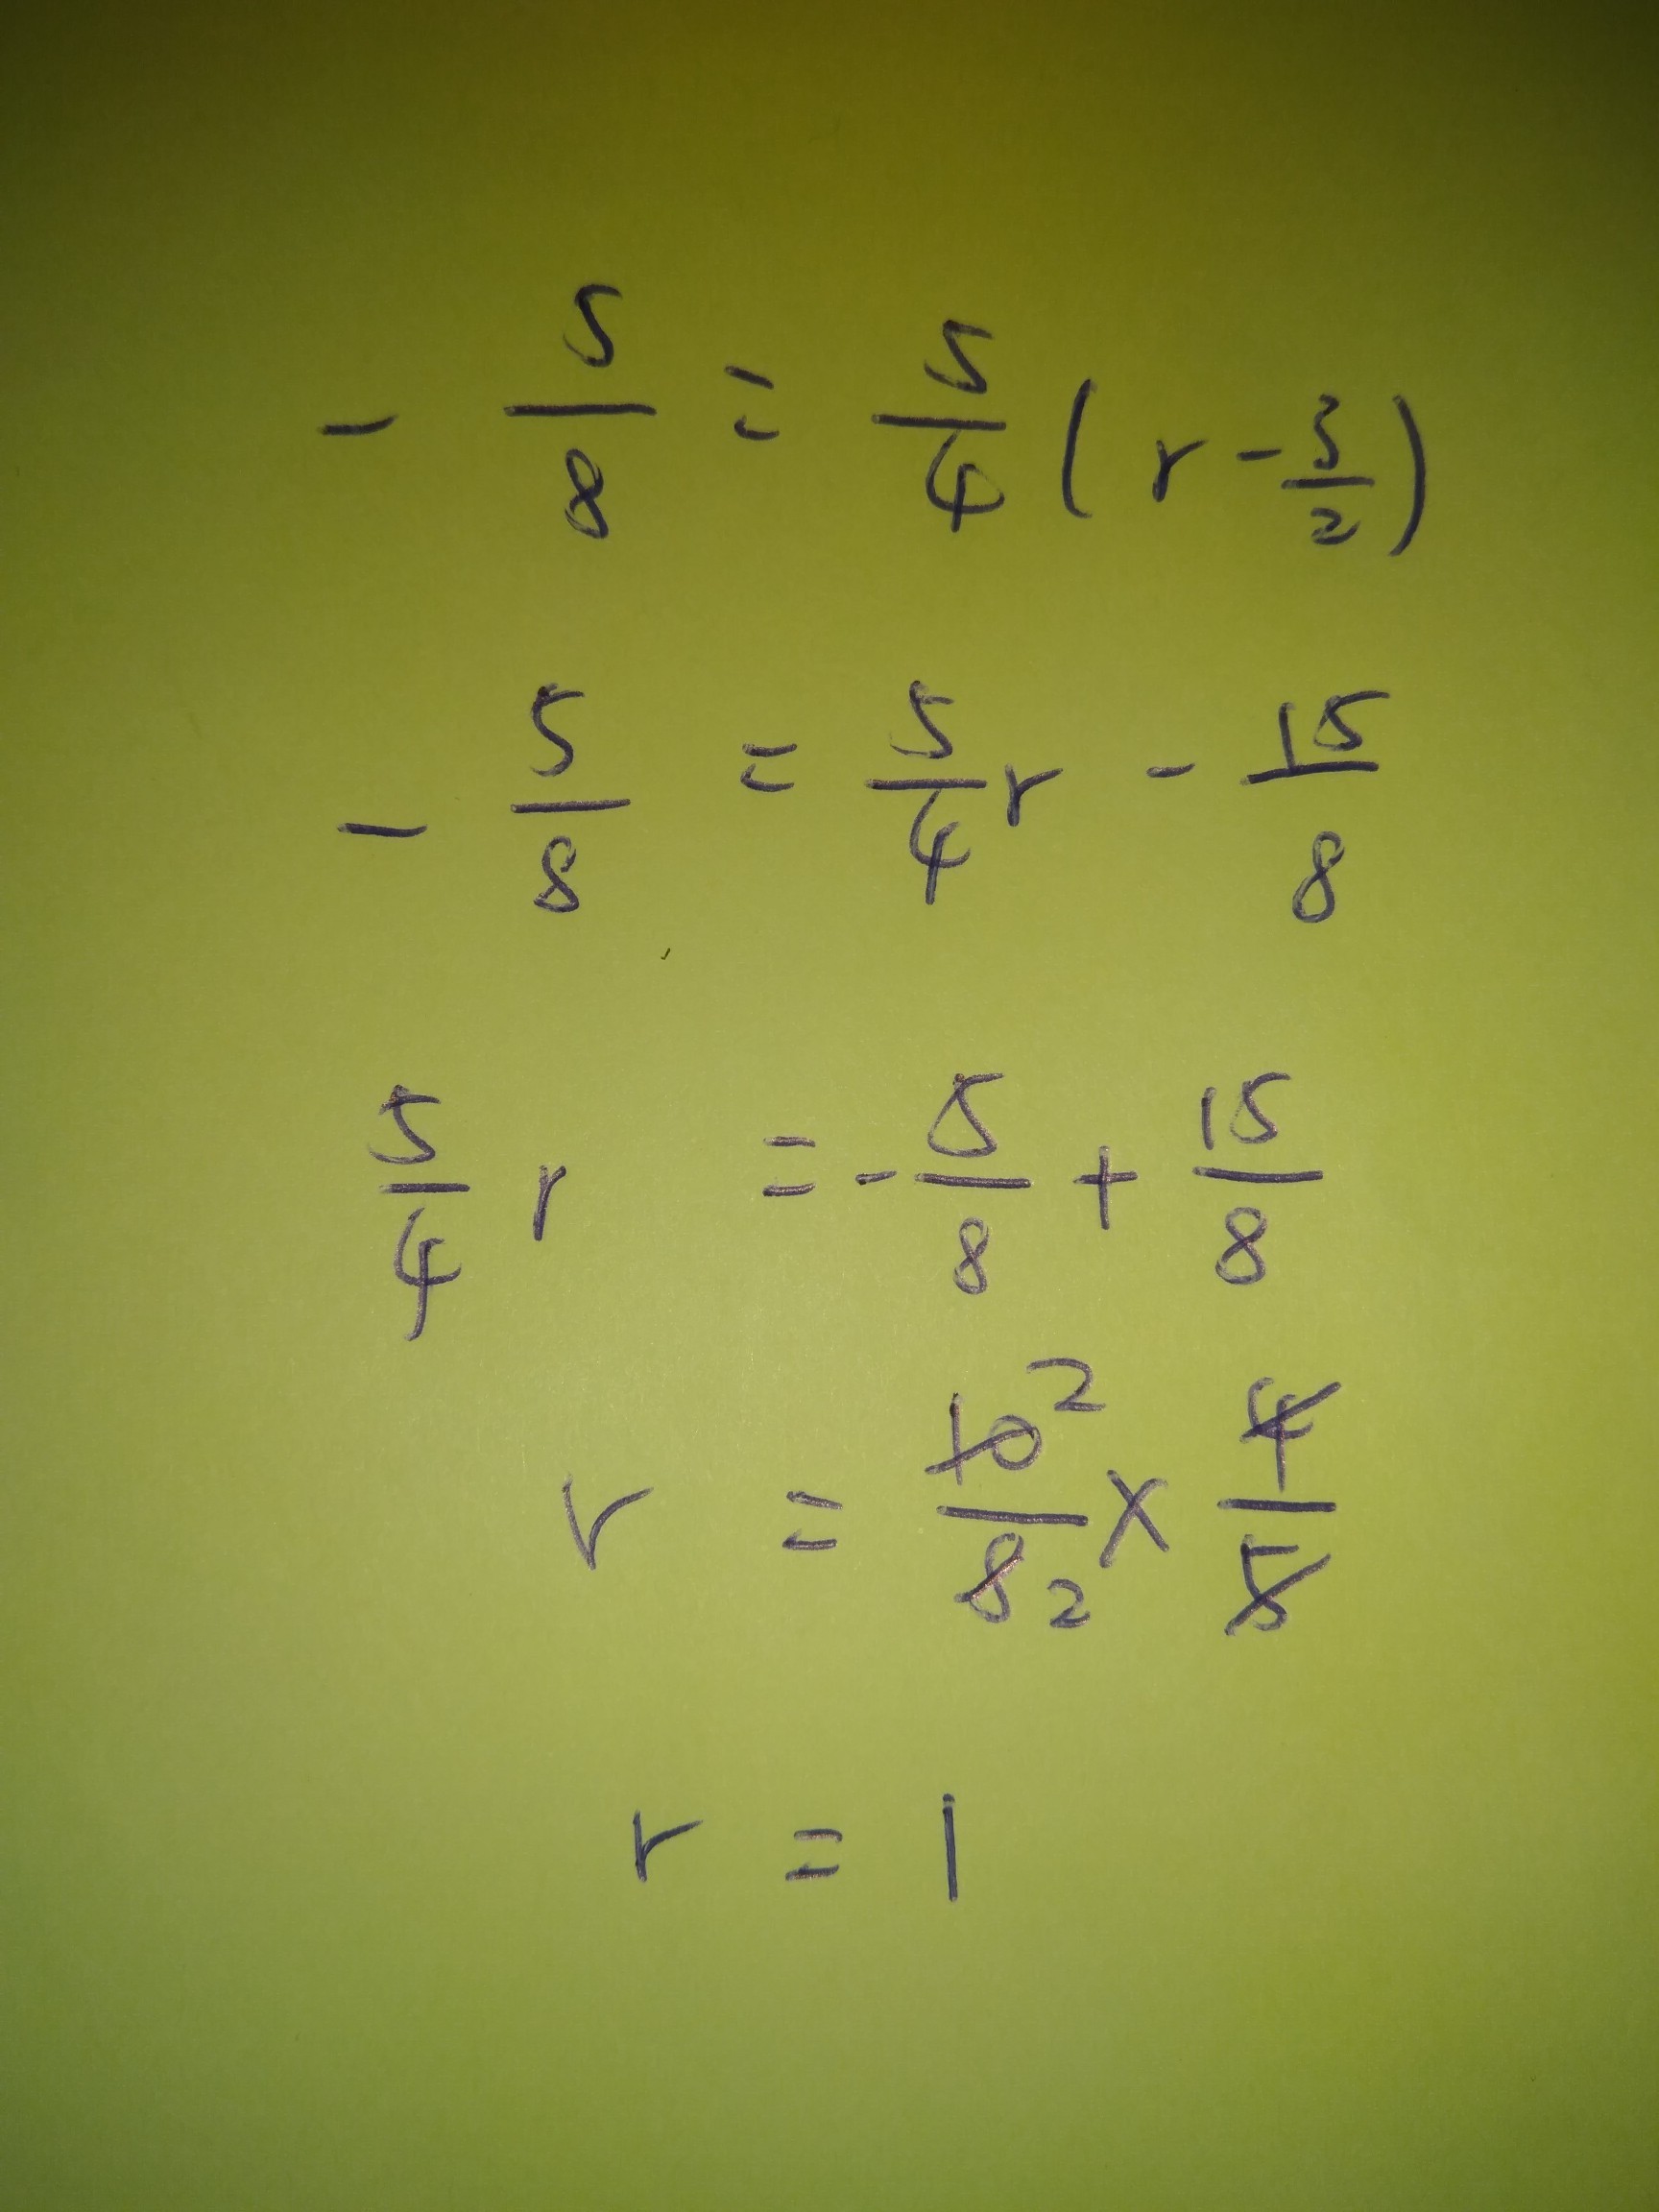 - 5/8 = 5/4 ( r - 3/2 )
- 5/8 = 5/4 r - 15/8
5/4 r = - 5/8 + 15/8
r = 10 2/8 2 × 4/5
r = 1